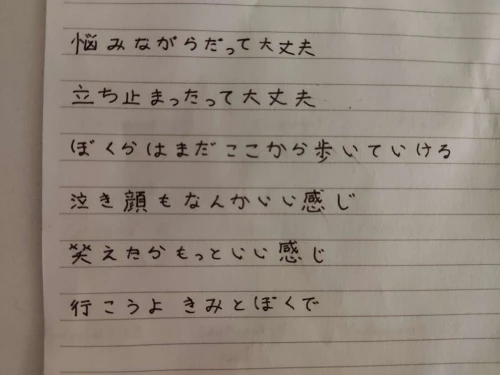 悩みながらだって大丈夫
立ち止まったって大丈夫
ぼくらはまだここから歩いていける
泣き顔もなんかいい感じ
笑えたらもっといい感じ
行こうよ きみとぼくで